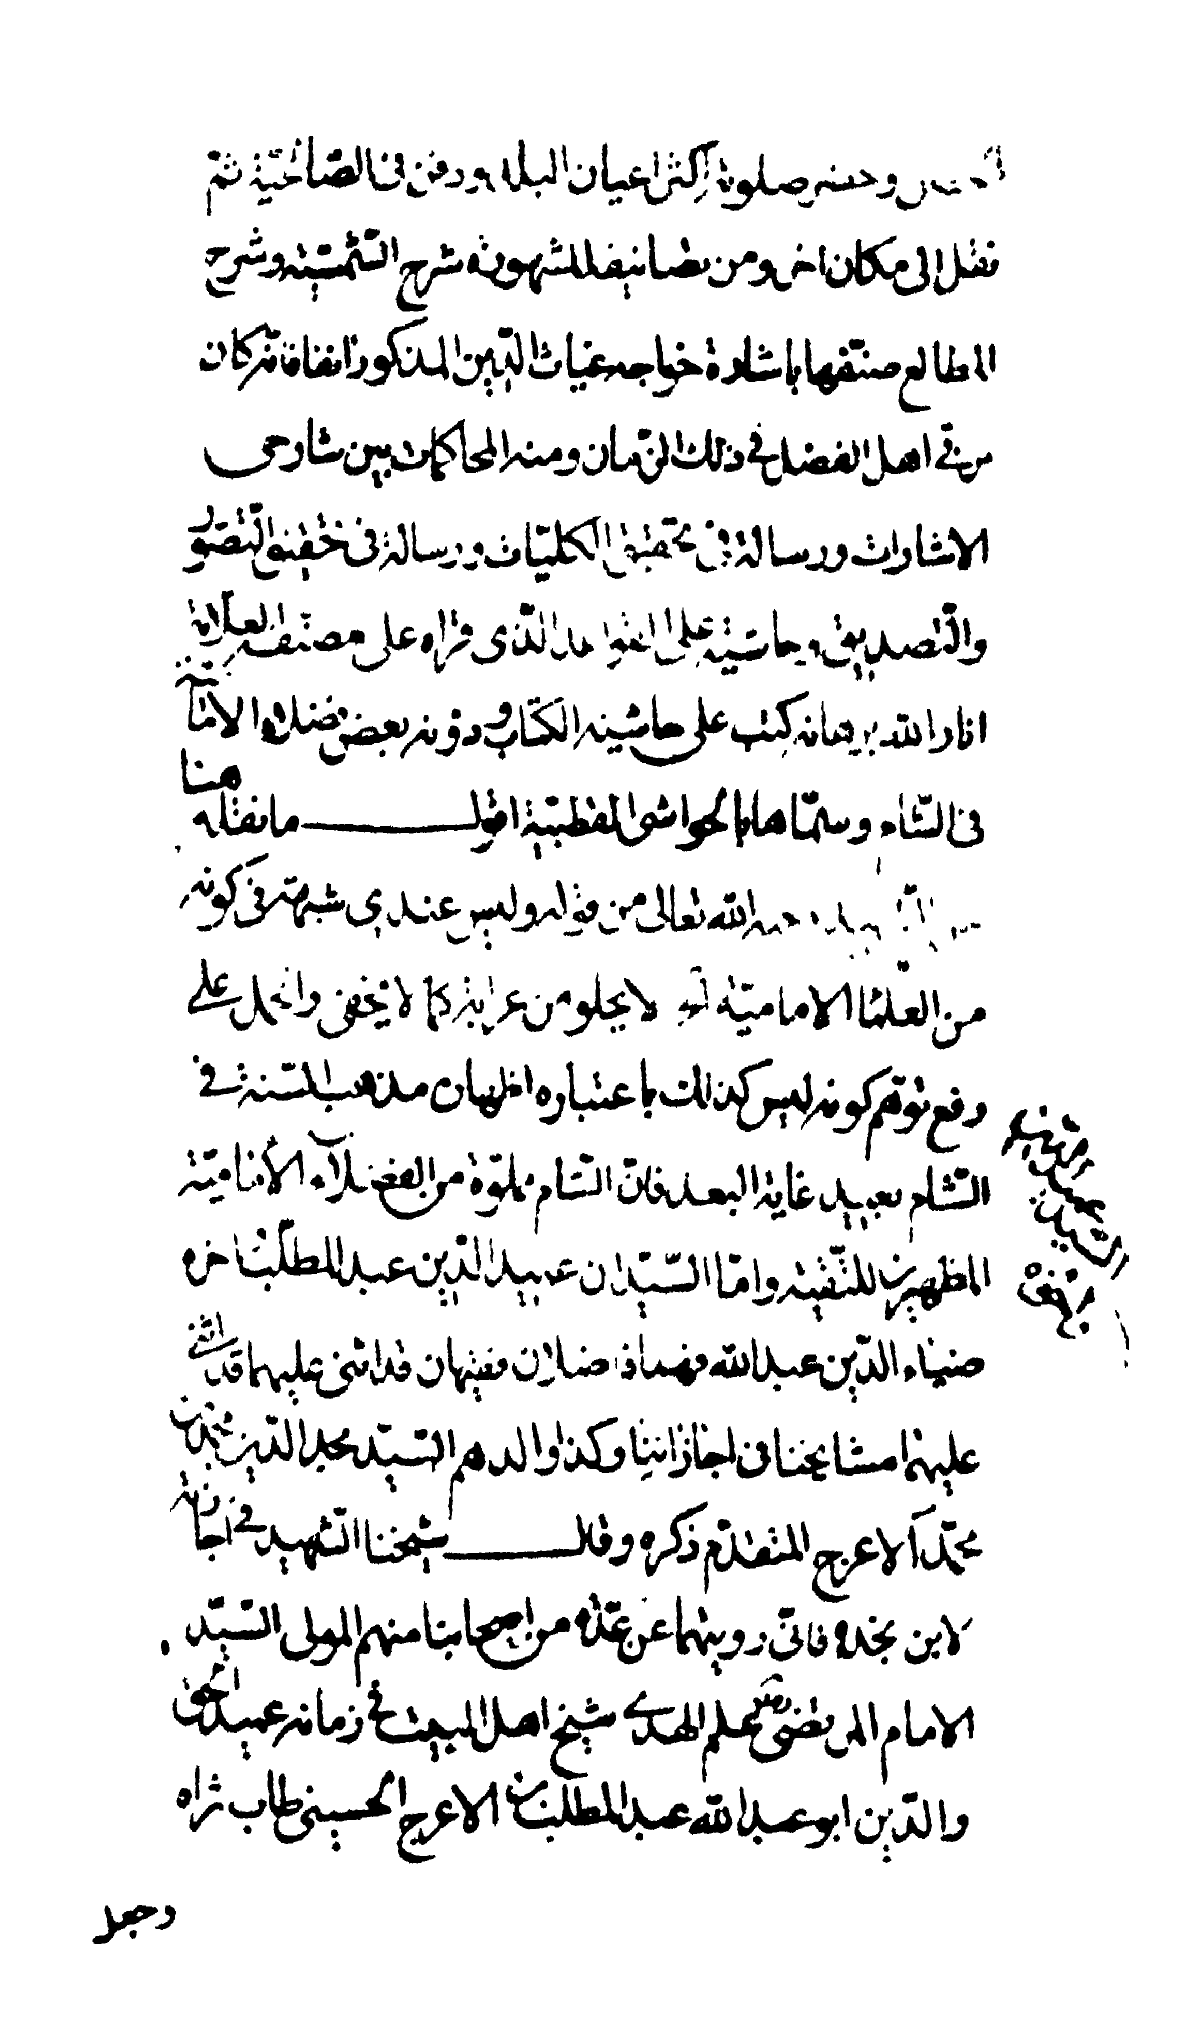 وحضر صلوته اكثر اعيان البلد ودفن في الصالحية ثم
نقل الى مكان اخر ومن تصانيفه المشهورة شرح الشمسية وشرح
المطالع صنفها باشارة خواجه غياث الدين المذكور اتفاقا فتر كان
من في اهل الفضل في ذلك الزمان ومنه المحاكمات بين شارحى
الاشارات ورسالة في تحقيق الكليات ورسالة في تحقيق التصور
والتصديق وحاشية على القواعد الذى قراه على مصنفه العلامة
انار الله برهانه كتب على حاشية الكتاب ودونه بعض فضلاء الامامية
في الشام وسماها بالحواشى القطبية اقول ما نقله هنا
رحمه الله تعالى من قوله وليس عندى شبهة في كونه
من العلماء الامامية لا يخلو من غرابة كما لا يخفى والحمل على
دفع توهم كونه ليس كذلك باعتباره اظهاره مذهب السنة في
الشام بعيد غاية البعد فان الشام مملوة من الفضلاء الامامية
المظهرين للتقية واما السيدان عميد الدين عبد المطلب واخوه
ضياء الدين عبد الله فهما فاضلان فقيهان قد اثنى عليهما قد اثنى
عليهما مشايخنا في اجازاتنا وكذا والدهم السيد مجد الدين محمد بن
محمد الاعرج المتقدم ذكره وقال شيخنا الشهيد في اجازته
لابن نجدة فانى رويتهما عن عدة من اصحابنا منهم المولى السيد
الامام المرتضى علم الهدى شيخ اهل البيت في زمانه عميد الحق
والدين ابو عبد الله عبد المطلب بن الاعرج الحسينى طاب ثراه
وجعل